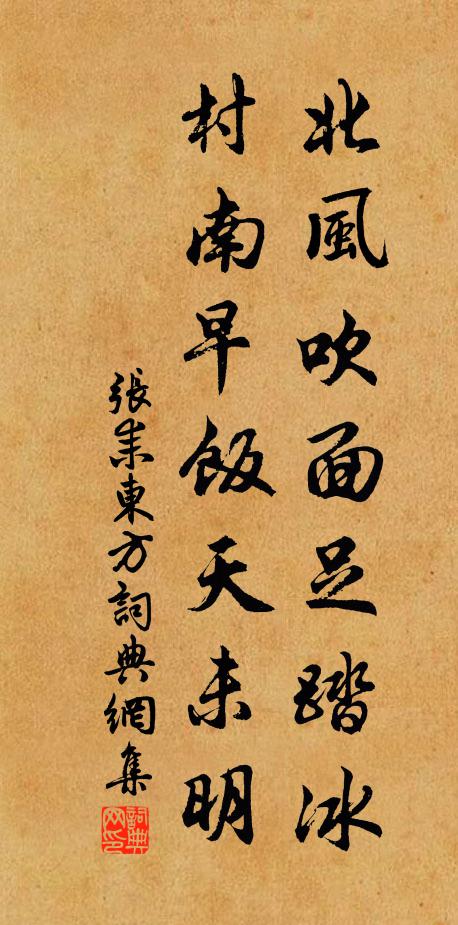 北風吹面足踏冰
村南早飯天未明
張耒東方詞典網集
詞典网印